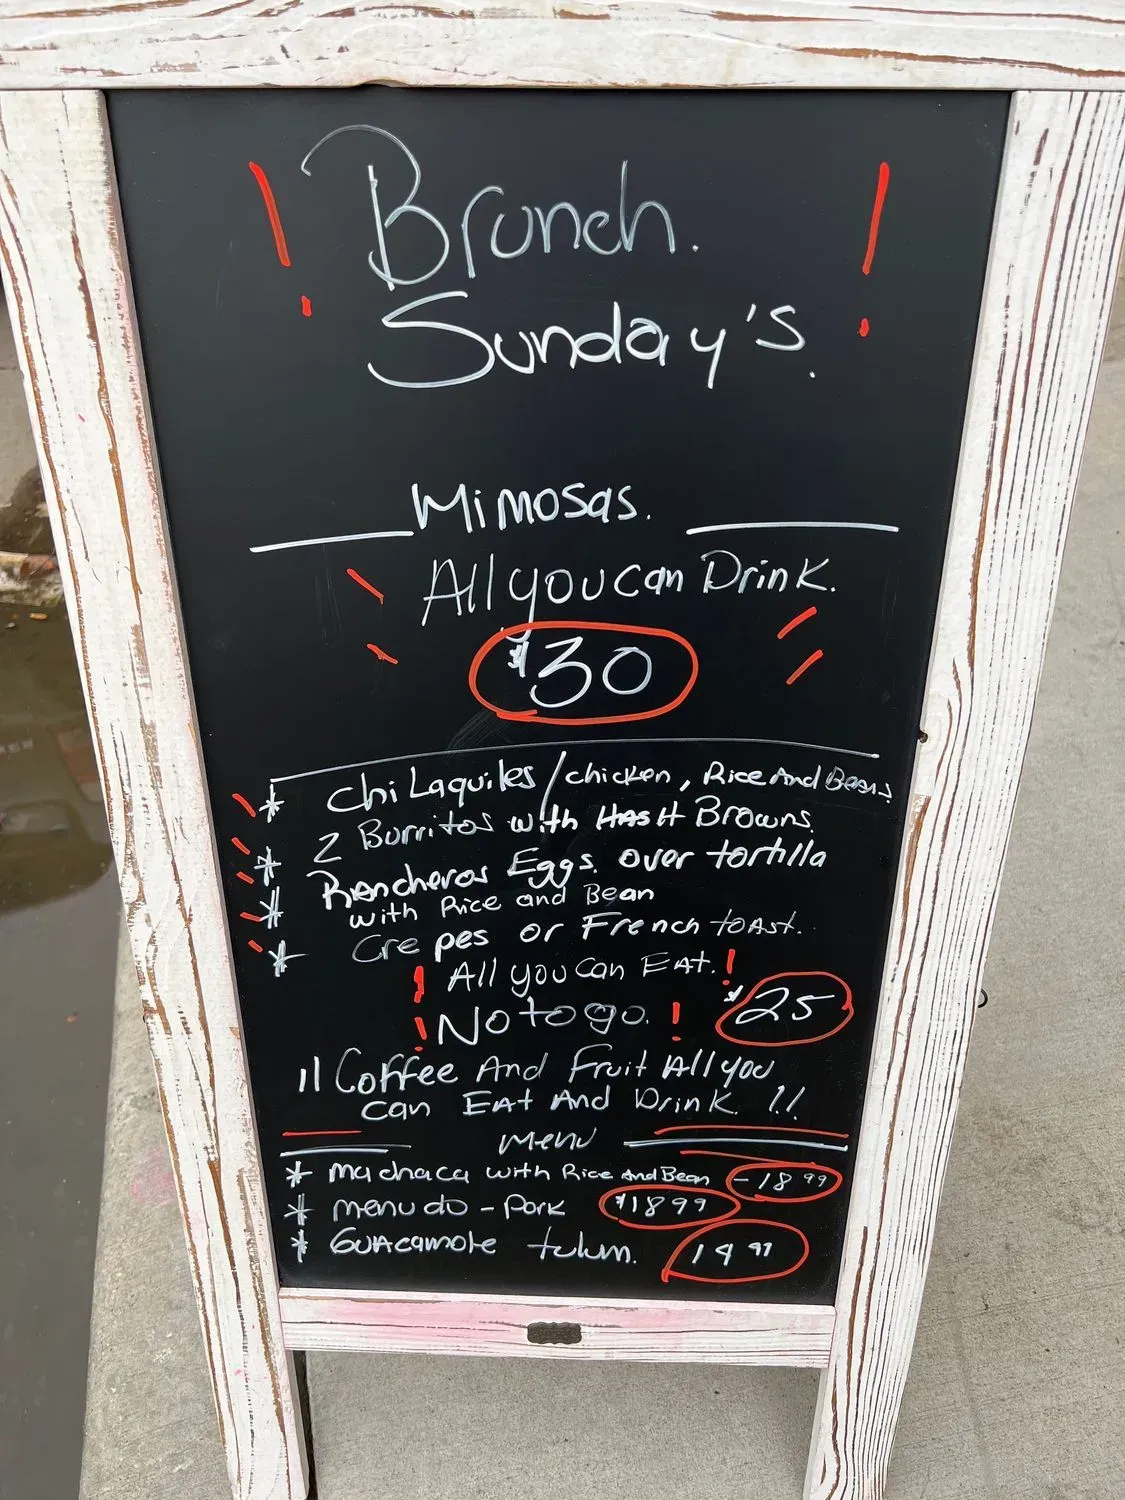 ! Brunch. !
Sunday's.
Mimosas.
All you can Drink.
$30
* Chi Laquiles / chicken, Rice And Beans
2 Burritos with HasH Browns.
* Rancheros Eggs. over tortilla
* with Rice and Bean
* Crepes or French toAst.
! All you can EAt. !
! No to go. ! $25
!! Coffee And Fruit All you
can EAt And Drink. !!
menu
* machaca with Rice And Bean - 18 99
* menudo - Pork $18 99
* GuAcamole tulum.